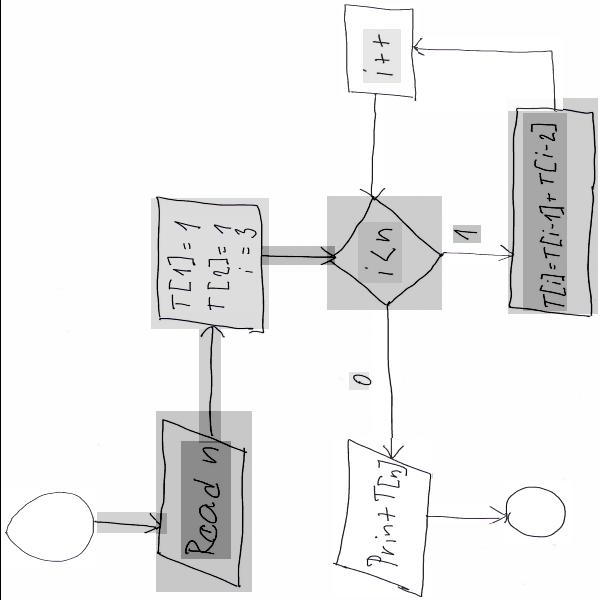 Read n
T[1]=1
T[2]=1
i=3
i<n
1
T[i]=T[i-1]+T[i-2]
i++
0
Print T[n]